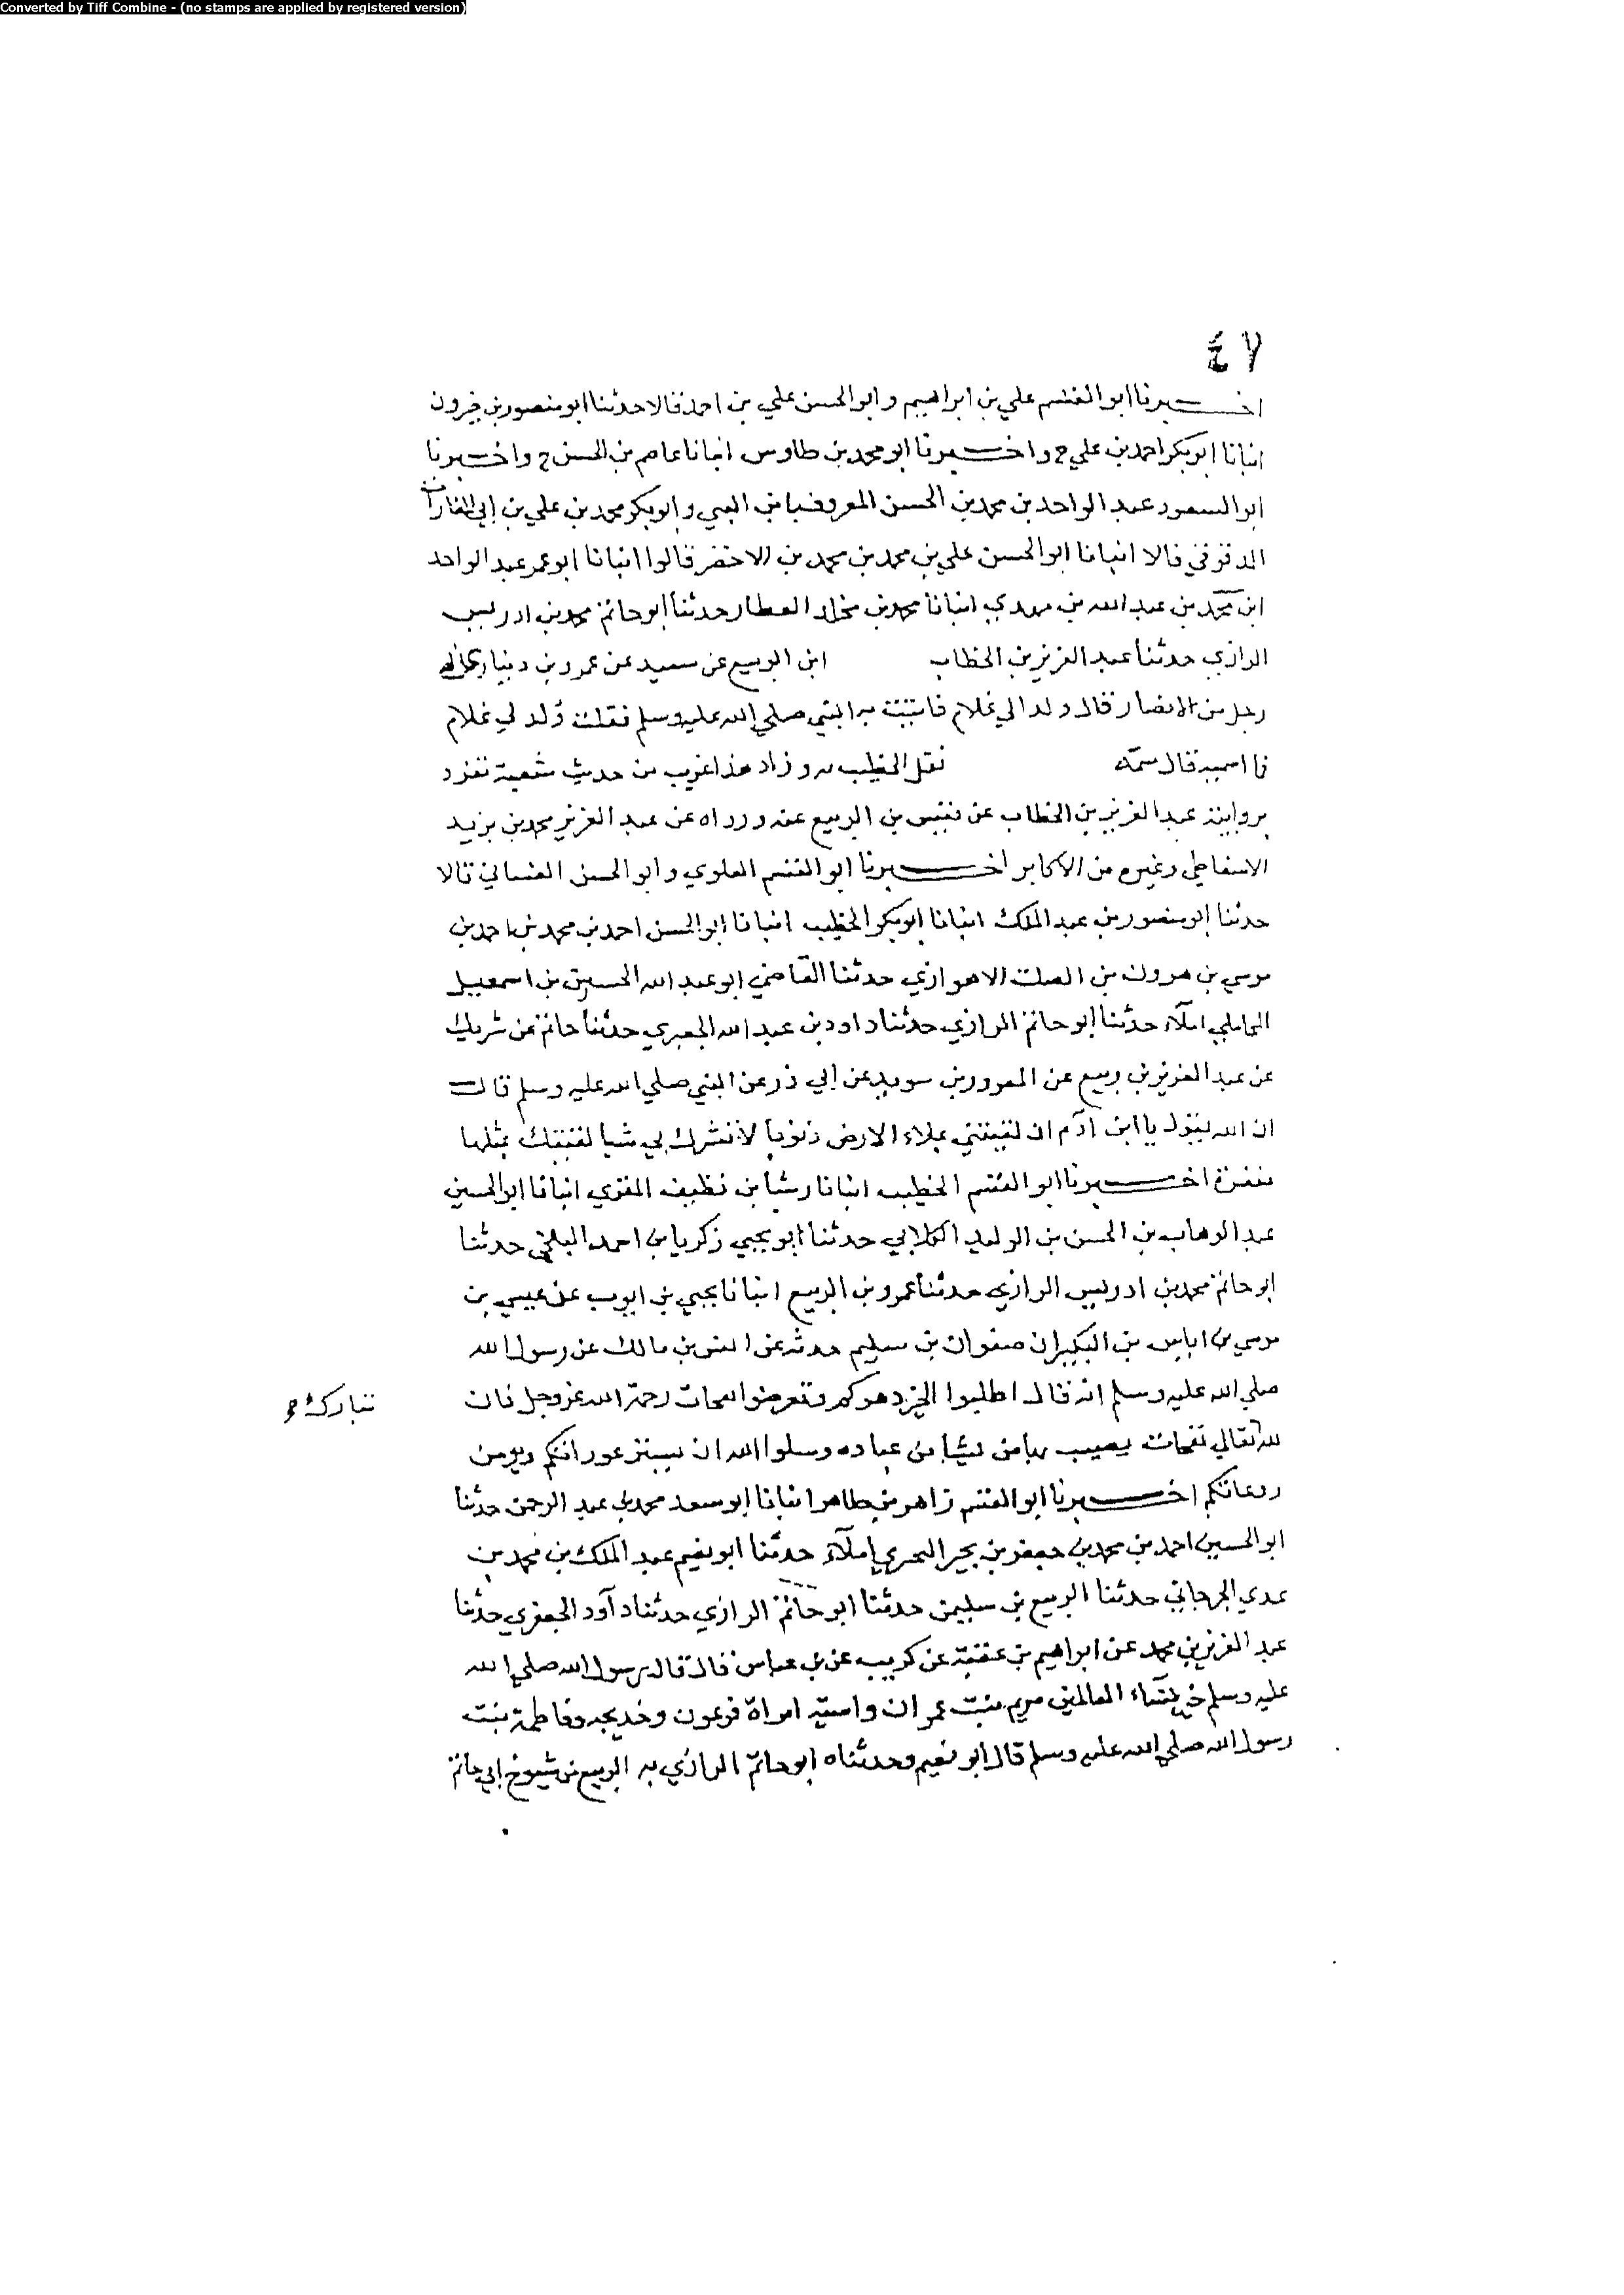 Converted by Tiff Combine - (no stamps are applied by registered version)
٤٧
اخبرنا ابو القسم علي بن ابراهيم وابو الحسن علي بن احمد قالا حدثنا ابو منصور بن خيرون
انبانا ابو بكر احمد بن علي ح واخبرنا ابو محمد بن طاوس انبانا عاصم بن الحسن ح واخبرنا
ابو السعود عبد الواحد بن محمد بن الحسن المعروف بابن وابو بكر محمد بن علي بن ابي
قالا انبانا ابو الحسن علي بن محمد بن محمد بن الاخضر قالوا انبانا ابو عمر عبد الواحد
ابن محمد بن عبد الله بن مهدي انبانا محمد بن مخلد العطار حدثنا ابو حاتم محمد بن ادريس
الرازي حدثنا عبد العزيز بن الخطاب ابن الربيع عن سعيد عن عمرو بن دينار
رجل من الانصار قال ولد لي غلام فاتيت به النبي صلي الله عليه وسلم فقلت ولد لي غلام
ما اسميه قال سمه الخطيب وزاد هذا غريب من حديث شعبة تفرد
بروايته عبد العزيز بن الخطاب عن قيس بن الربيع عنه ورواه عن عبد العزيز محمد بن يزيد
الاسفاطي وغيره من الاكابر اخبرنا ابو القسم العلوي وابو الحسن الغساني قالا
حدثنا ابو منصور بن عبد الملك انبانا ابو بكر الخطيب انبانا ابو الحسن احمد بن محمد بن احمد بن
موسي بن هرون بن الصلت الاهوازي حدثنا القاضي ابو عبد الله الحسين بن اسمعيل
المحاملي املآء حدثنا ابو حاتم الرازي حدثنا داود بن عبد الله الجعبري حدثنا حاتم عن شريك
عن عبد العزيز بن ربيع عن المعرور بن سويد عن ابي ذر عن النبي صلي الله عليه وسلم قال
ان الله يقول يا ابن آدم ان لقيتني بملاء الارض ذنوبا لا تشرك بي شيا لقيتك بمثلها
مغفرة اخبرنا ابو القسم الخطيب انبانا رشا بن نظيف المقري انبانا ابو الحسين
عبد الوهاب بن الحسن بن الوليد الكلابي حدثنا ابو يحيي زكريا بن احمد البلخي حدثنا
ابو حاتم محمد بن ادريس الرازي حدثنا عمرو بن الربيع انبانا يحيي بن ايوب عن عيسي بن
موسي بن اياس بن البكير ان صفوان بن سليم حدثه عن انس بن مالك عن رسول الله
صلي الله عليه وسلم انه قال اطلبوا الخير دهركم وتعرضوا رحمة الله عز وجل فان
تبارك و
لله تعالي نفحات يصيب بها من يشا من عباده وسلوا الله ان يستر عوراتكم ويومن
روعاتكم اخبرنا ابو القسم زاهر بن طاهر انبانا ابو سعد محمد بن عبد الرحمن حدثنا
ابو الحسين احمد بن محمد بن جعفر بن بحير البحري املآء حدثنا ابو نعيم عبد الملك بن محمد بن
عدي الجرجاني حدثنا الربيع بن سليمن حدثنا ابو حاتم الرازي حدثنا دآود الجعفري حدثنا
عبد العزيز بن محمد عن ابراهيم بن عقبة عن كريب عن بن عباس قال قال رسول الله صلي الله
عليه وسلم خير نسآء العالمين مريم بنت عمران واسيه امراة فرعون وخديجه وفاطمة بنت
رسول الله صلي الله عليه وسلم قال ابو نعيم وحدثناه ابو حاتم الرازي به الربيع من شيوخ ابي حاتم